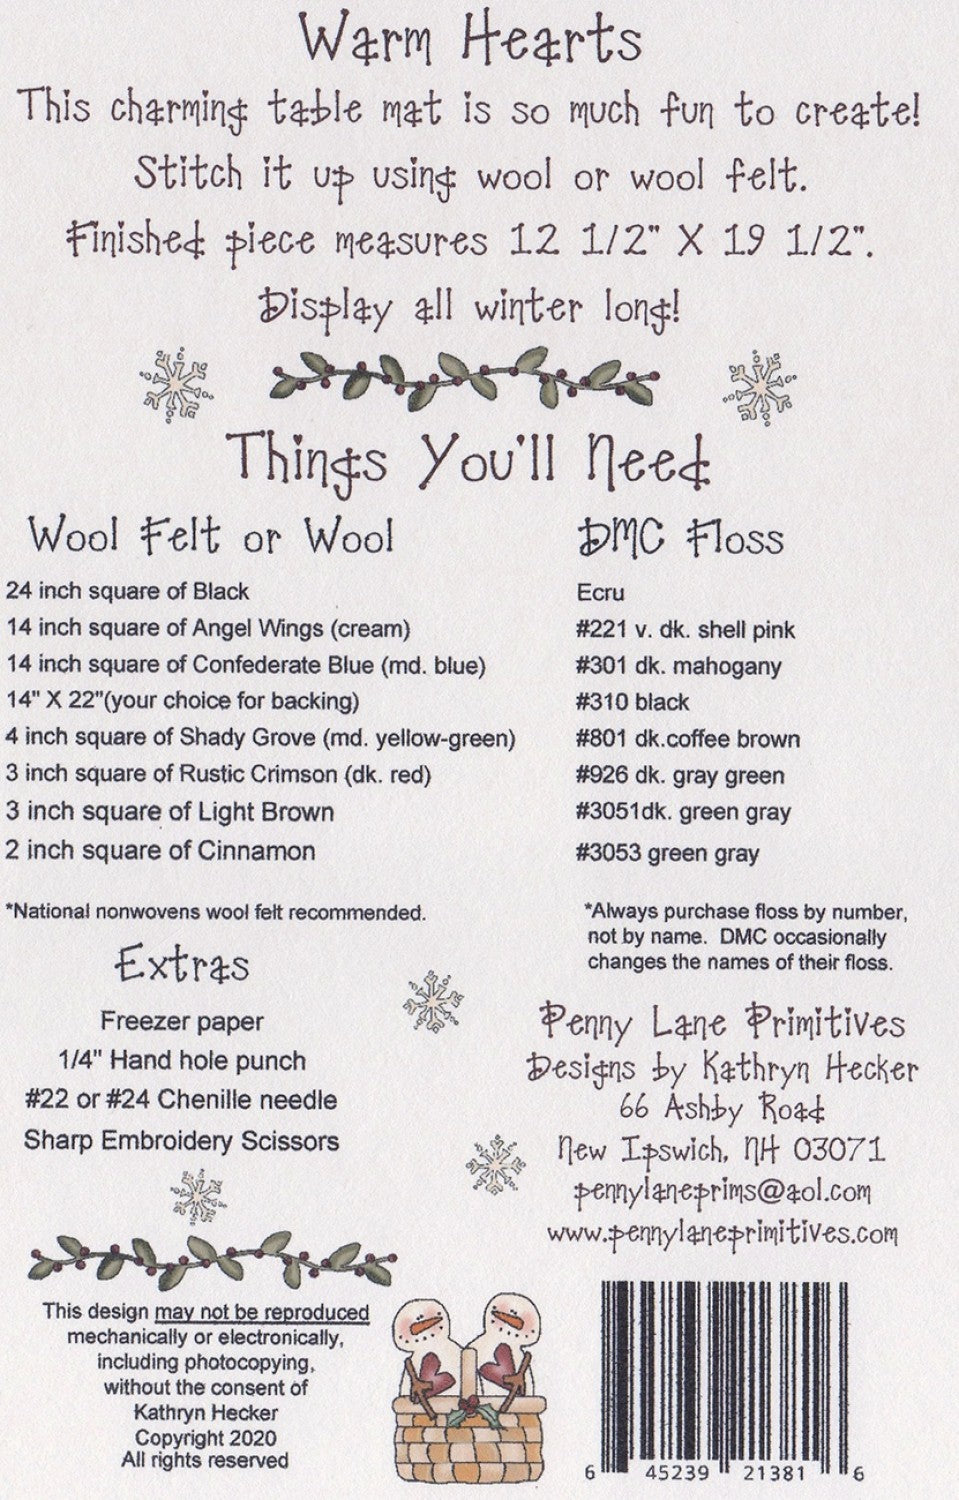 Warm Hearts
This charming table mat is so much fun to create!
Stitch it up using wool or wool felt.
Finished piece measures 12 1/2" X 19 1/2".
Display all winter long!
Things You'll Need
Wool Felt or Wool
24 inch square of Black
14 inch square of Angel Wings (cream)
14 inch square of Confederate Blue (md. blue)
14" X 22"(your choice for backing)
4 inch square of Shady Grove (md. yellow-green)
3 inch square of Rustic Crimson (dk. red)
3 inch square of Light Brown
2 inch square of Cinnamon
*National nonwovens wool felt recommended.
DMC Floss
Ecru
#221 v. dk. shell pink
#301 dk. mahogany
#310 black
#801 dk.coffee brown
#926 dk. gray green
#3051dk. green gray
#3053 green gray
*Always purchase floss by number,
not by name. DMC occasionally
changes the names of their floss.
Extras
Freezer paper
1/4" Hand hole punch
#22 or #24 Chenille needle
Sharp Embroidery Scissors
Penny Lane Primitives
Designs by Kathryn Hecker
66 Ashby Road
New Ipswich, NH 03071
pennylaneprims@aol.com
www.pennylaneprimitives.com
This design may not be reproduced
mechanically or electronically,
including photocopying,
without the consent of
Kathryn Hecker
Copyright 2020
All rights reserved
6 45239 21381 6